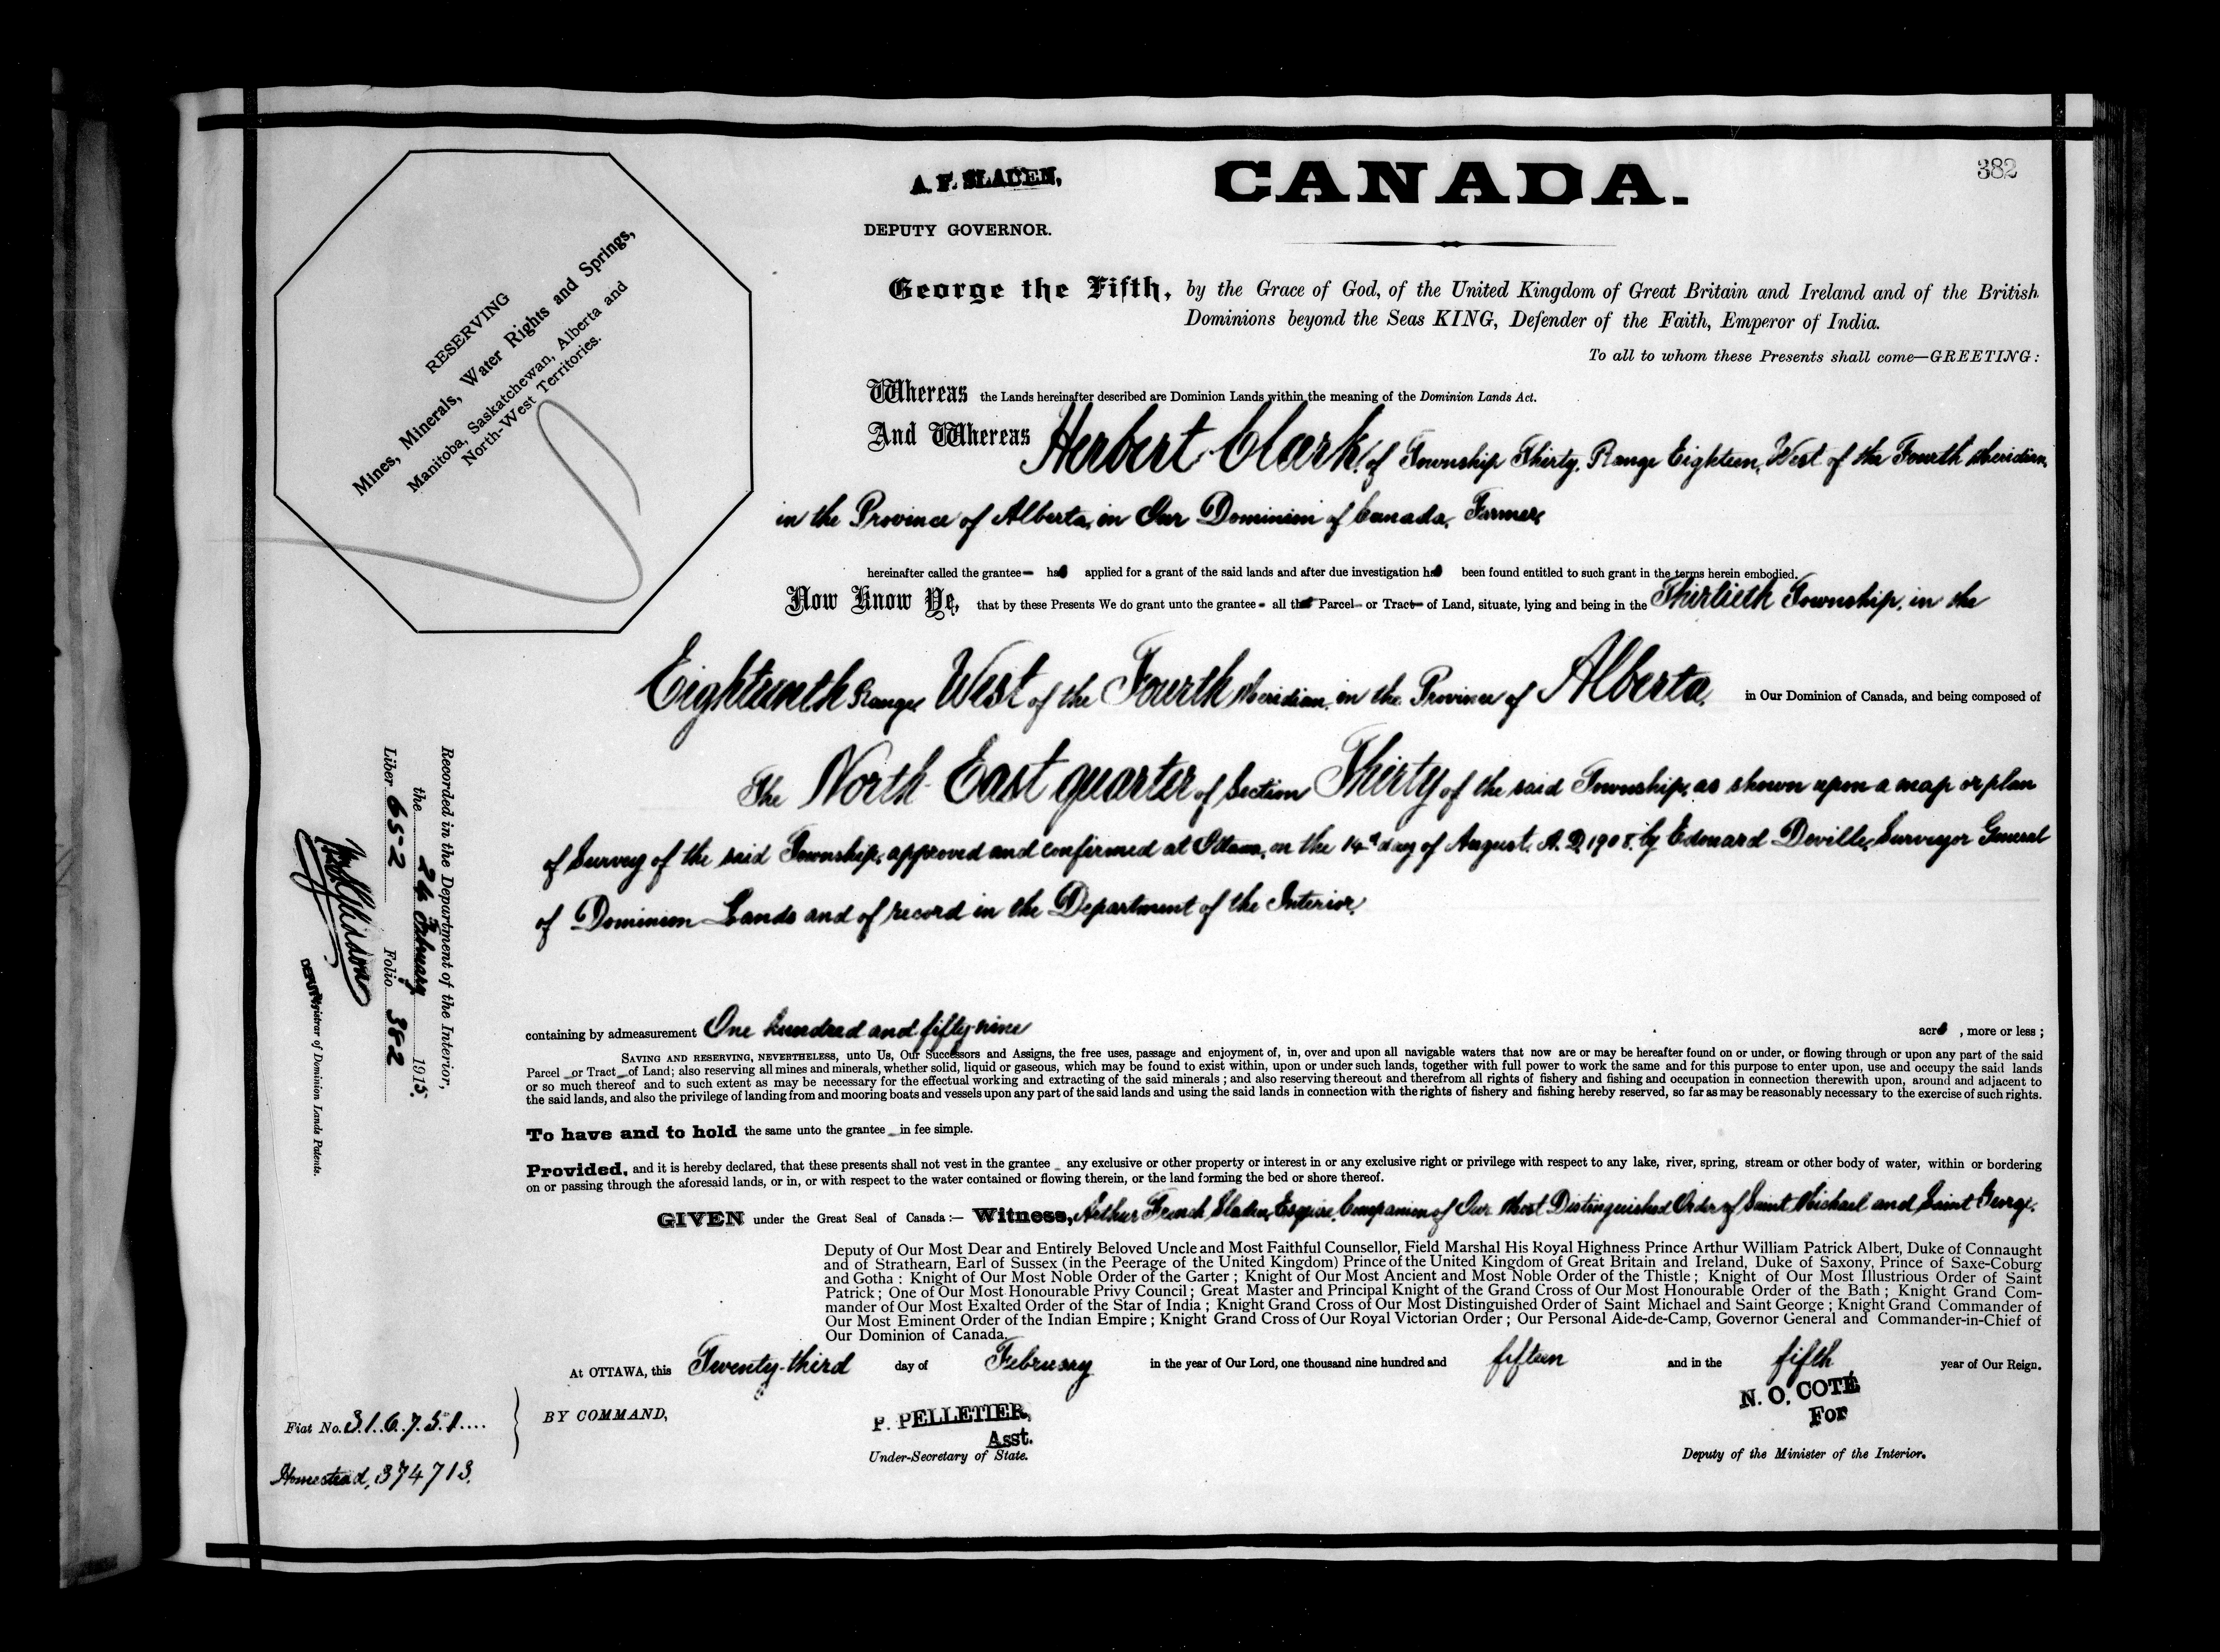 382
A. F. SLADEN,
DEPUTY GOVERNOR.
CANADA.
RESERVING
Mines, Minerals, Water Rights and Springs,
Manitoba, Saskatchewan, Alberta and
North-West Territories.
George the Fifth, by the Grace of God, of the United Kingdom of Great Britain and Ireland and of the British
Dominions beyond the Seas KING, Defender of the Faith, Emperor of India.
To all to whom these Presents shall come—GREETING:
Whereas the Lands hereinafter described are Dominion Lands within the meaning of the Dominion Lands Act.
And Whereas Herbert Clark, of Township Thirty, Range Eighteen, West of the Fourth Meridian,
in the Province of Alberta, in Our Dominion of Canada, Farmer,
hereinafter called the grantee has applied for a grant of the said lands and after due investigation has been found entitled to such grant in the terms herein embodied.
Now Know Ye, that by these Presents We do grant unto the grantee all that Parcel or Tract of Land, situate, lying and being in the Thirtieth Township, in the
Eighteenth Range, West of the Fourth Meridian, in the Province of Alberta, in Our Dominion of Canada, and being composed of
The North East quarter of Section Thirty of the said Township, as shown upon a map or plan
of Survey of the said Township, approved and confirmed at Ottawa, on the 14th day of August, A. D. 1908, by Edouard Deville, Surveyor General
of Dominion Lands and of record in the Department of the Interior,
containing by admeasurement One hundred and fifty-nine acres, more or less;
SAVING AND RESERVING, NEVERTHELESS, unto Us, Our Successors and Assigns, the free uses, passage and enjoyment of, in, over and upon all navigable waters that now are or may be hereafter found on or under, or flowing through or upon any part of the said
Parcel or Tract of Land; also reserving all mines and minerals, whether solid, liquid or gaseous, which may be found to exist within, upon or under such lands, together with full power to work the same and for this purpose to enter upon, use and occupy the said lands
or so much thereof and to such extent as may be necessary for the effectual working and extracting of the said minerals; and also reserving thereout and therefrom all rights of fishery and fishing and occupation in connection therewith upon, around and adjacent to
the said lands, and also the privilege of landing from and mooring boats and vessels upon any part of the said lands and using the said lands in connection with the rights of fishery and fishing hereby reserved, so far as may be reasonably necessary to the exercise of such rights.
To have and to hold the same unto the grantee in fee simple.
Provided, and it is hereby declared, that these presents shall not vest in the grantee any exclusive or other property or interest in or any exclusive right or privilege with respect to any lake, river, spring, stream or other body of water, within or bordering
on or passing through the aforesaid lands, or in, or with respect to the water contained or flowing therein, or the land forming the bed or shore thereof.
GIVEN under the Great Seal of Canada:— Witness, Arthur French Sladen, Esquire, Companion of Our Most Distinguished Order of Saint Michael and Saint George,
Deputy of Our Most Dear and Entirely Beloved Uncle and Most Faithful Counsellor, Field Marshal His Royal Highness Prince Arthur William Patrick Albert, Duke of Connaught
and of Strathearn, Earl of Sussex (in the Peerage of the United Kingdom) Prince of the United Kingdom of Great Britain and Ireland, Duke of Saxony, Prince of Saxe-Coburg
and Gotha: Knight of Our Most Noble Order of the Garter; Knight of Our Most Ancient and Most Noble Order of the Thistle; Knight of Our Most Illustrious Order of Saint
Patrick; One of Our Most Honourable Privy Council; Great Master and Principal Knight of the Grand Cross of Our Most Honourable Order of the Bath; Knight Grand Com-
mander of Our Most Exalted Order of the Star of India; Knight Grand Cross of Our Most Distinguished Order of Saint Michael and Saint George; Knight Grand Commander of
Our Most Eminent Order of the Indian Empire; Knight Grand Cross of Our Royal Victorian Order; Our Personal Aide-de-Camp, Governor General and Commander-in-Chief of
Our Dominion of Canada.
At OTTAWA, this Twenty-third day of February in the year of Our Lord, one thousand nine hundred and fifteen and in the fifth year of Our Reign.
BY COMMAND,
P. PELLETIER,
Asst.
Under-Secretary of State.
N. O. COTÉ
For
Deputy of the Minister of the Interior.
Fiat No. 316751
Homestead, 374713.
Recorded in the Department of the Interior,
the 24 February 1915.
Liber 652 Folio 382
DEPUTY Registrar of Dominion Lands Patents.